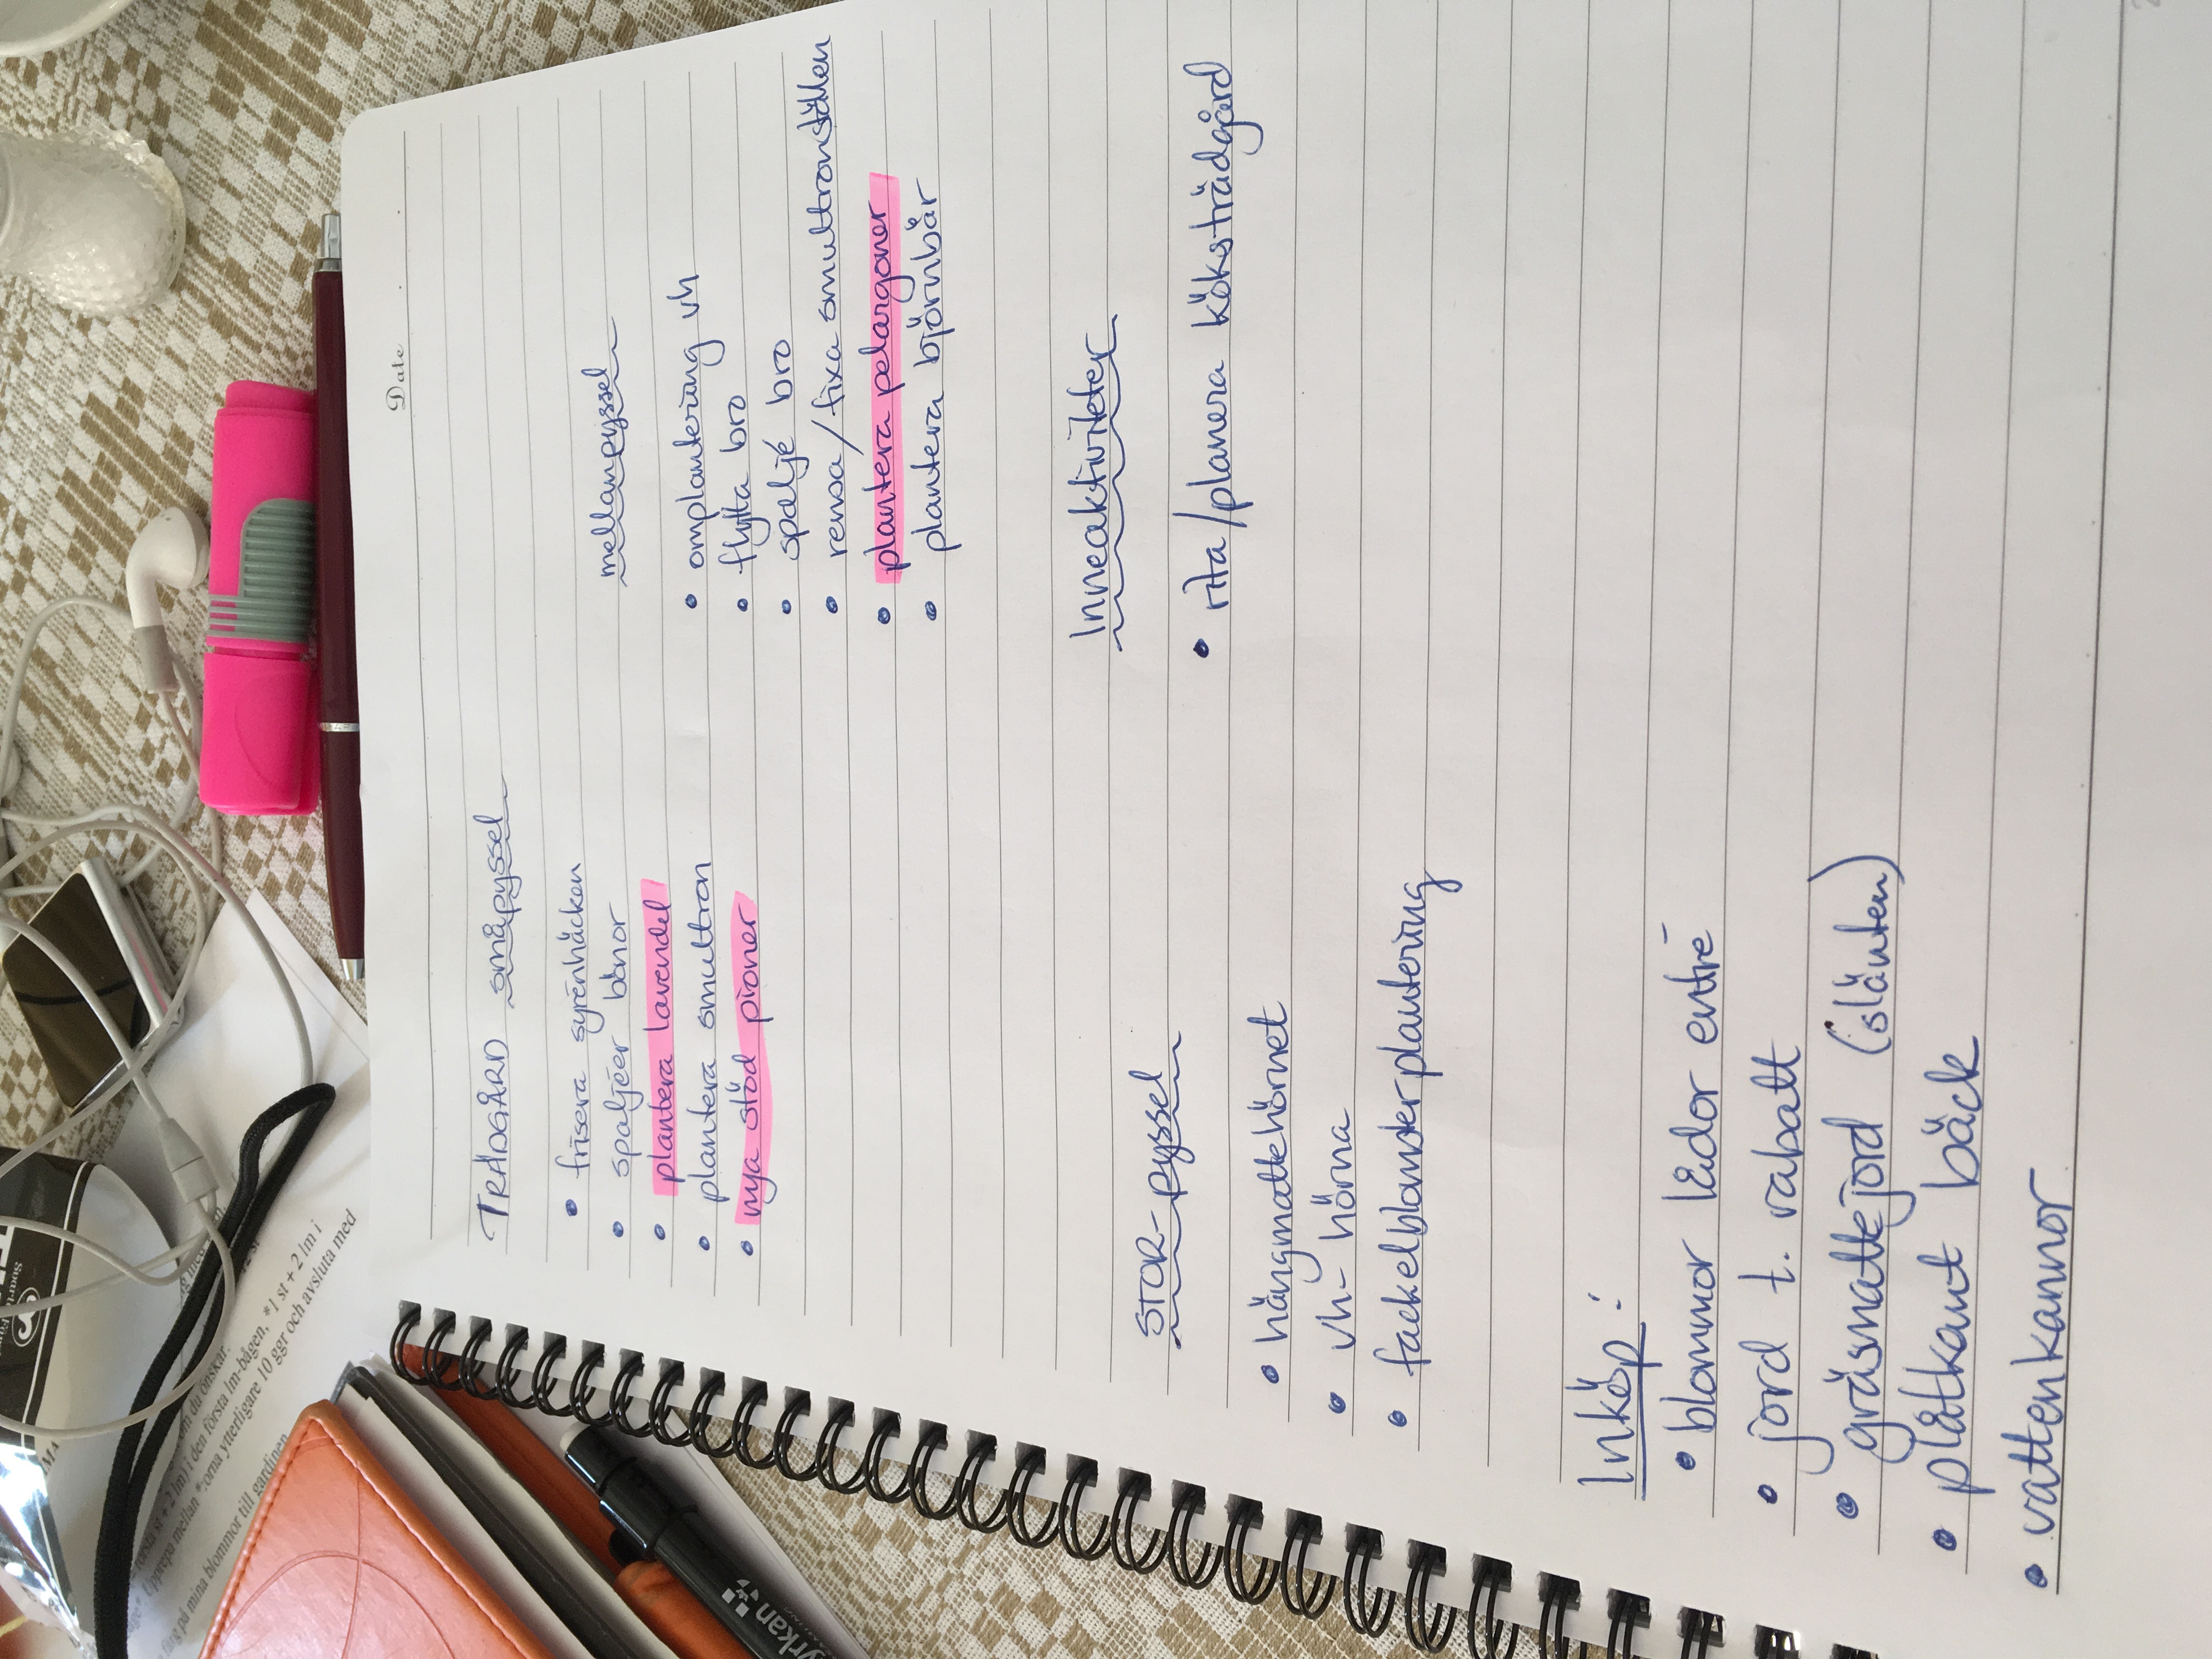 Date
TRÄDGÅRD småpyssel
• frisera syrenhäcken
• spaljéer bönor
• plantera lavendel
• plantera smultron
• nya stöd pioner
mellanpyssel
• omplantering vh
• flytta bro
• spaljé bro
• rensa/fixa smultronställen
• plantera pelargoner
• plantera björnbär
STOR-pyssel
• hängmattehörnet
• vh-hörna
• fackelblomsterplantering
Inneaktiviteter
• rita/planera köksträdgård
Inköp:
• blommor lådor entré
• jord t. rabatt
• gräsmattejord (slänten)
• plåtkant bäck
• vattenkannor
om du önskar.
i den första lm-bågen, *1 st + 2 lm i
Upprepa mellan *-orna ytterligare 10 ggr och avsluta med
färg på mina blommor till gardinen
yrkan